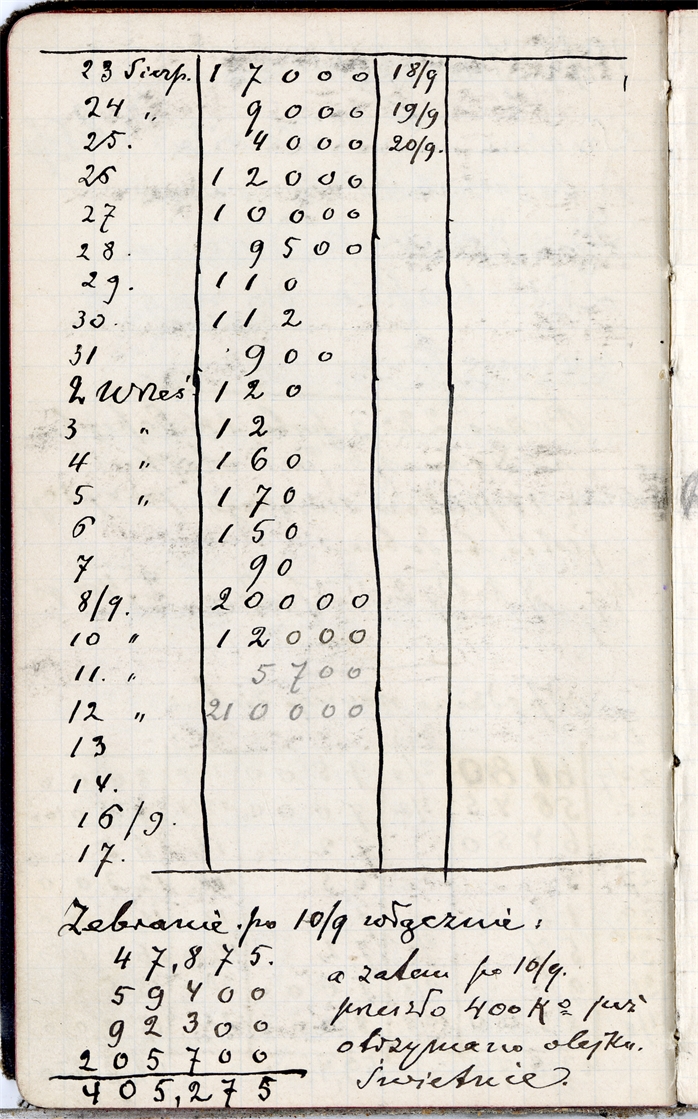 23 Sierp. 1 7 0 0 0 18/9
24 „ 9 0 0 0 19/9
25. 4 0 0 0 20/9.
26 1 2 0 0 0
27 1 0 0 0 0
28. 9 5 0 0
29. 1 1 0
30. 1 1 2
31 9 0 0
2 Wrześ. 1 2 0
3 „ 1 2
4 „ 1 6 0
5 „ 1 7 0
6 1 5 0
7 9 0
8/9. 2 0 0 0 0
10 „ 1 2 0 0 0
11. „ 5 7 0 0
12 „ 21 0 0 0 0
13
14.
16/9.
17.
Zebranie po 10/9 włącznie:
4 7,8 7 5.
5 9 4 0 0
9 2 3 0 0
2 0 5 7 0 0
4 0 5,2 7 5
a zatem po 10/9.
przeszło 400 Ko już
otrzymano olejku.
Świetnie.